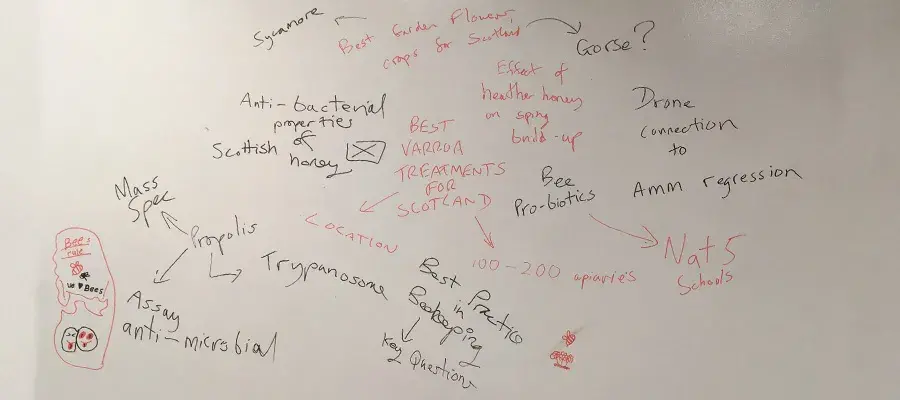 Sycamore
Best Garden Flowers,
crops for Scotland
Gorse?
Anti-bacterial
properties
of
Scottish honey
BEST
VARROA
TREATMENTS
FOR
SCOTLAND
Effect of
heather honey
on spring
build-up
Drone
connection
to
Amm regression
Bee
Pro-biotics
Nat 5
Schools
LOCATION
100-200 apiaries
Mass
Spec
Propolis
Trypanosome
Assay
anti-microbial
Best Practice
in
Beekeeping
Key Questions
Bees
rule
we ♥ Bees